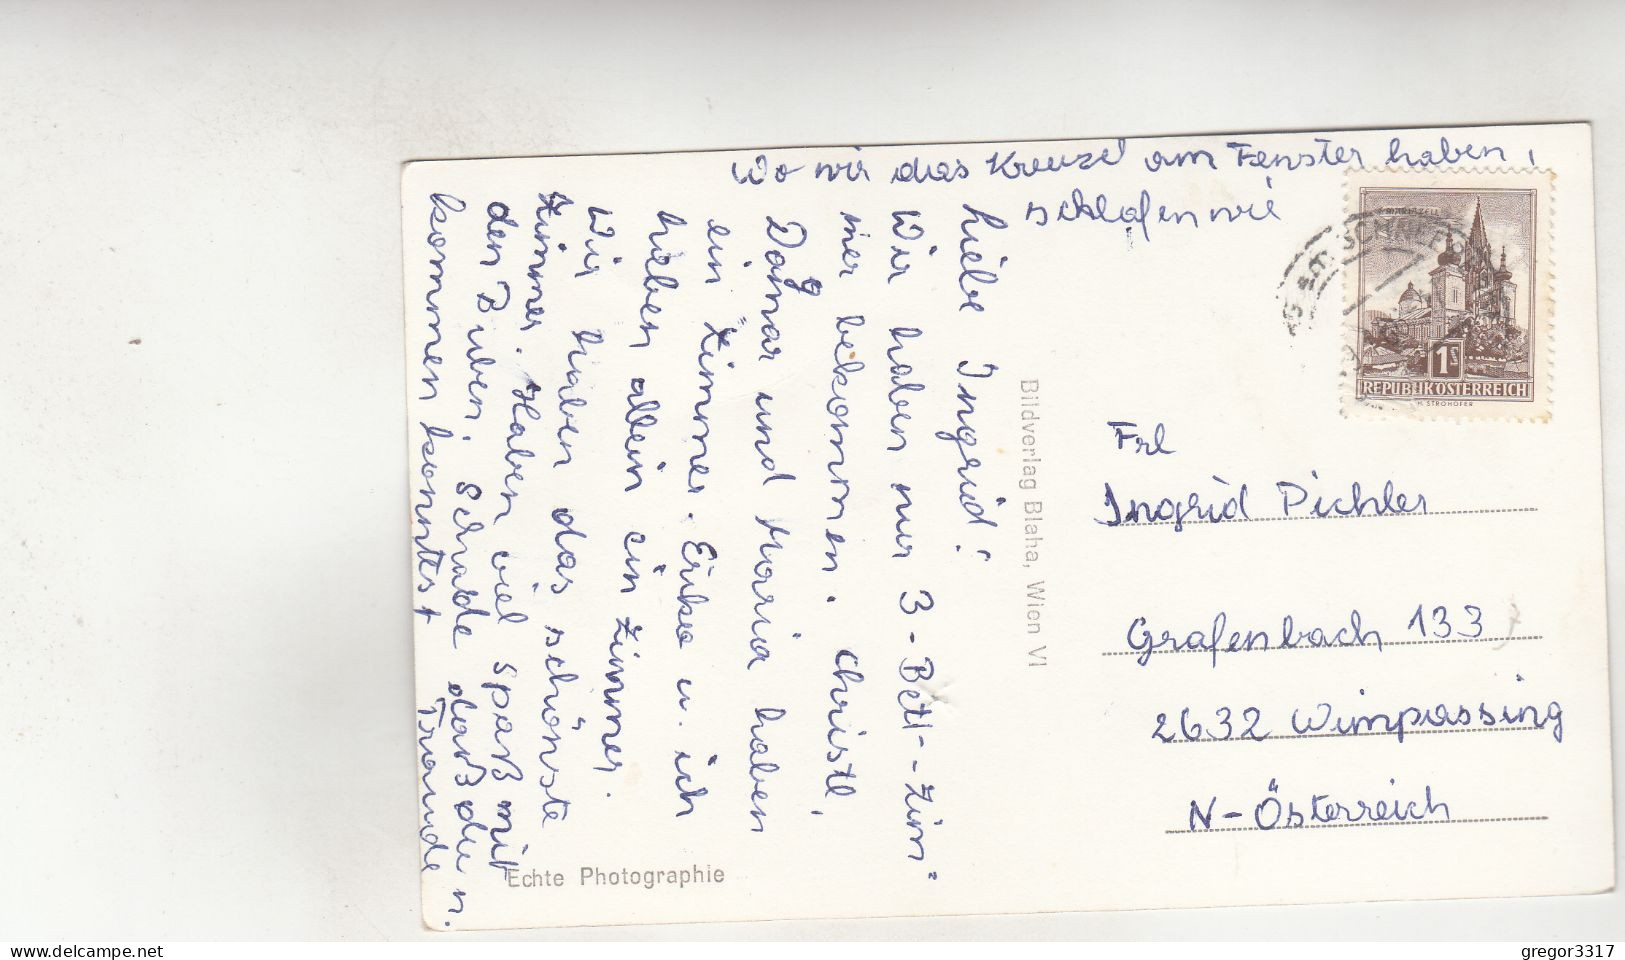 Wo wir das Kreuzel am Fenster haben,
schlafen wir
Liebe Ingrid!
Wir haben nur 3-Bett-Zim"
mer bekommen. Christl,
Dagmar und Maria haben
ein Zimmer. Erika u. ich
haben allein ein Zimmer.
Wir haben das schönste
Zimmer. Haben viel Spaß mit
den Buben. Schade daß du n.
kommen konntest Traude
Echte Photographie
Bildverlag Blaha, Wien VI
MARIAZELL
1S
REPUBLIK ÖSTERREICH
H. STROHOFER
Frl
Ingrid Pichler
Grafenbach 133
2632 Wimpassing
N-Österreich
gregor3317